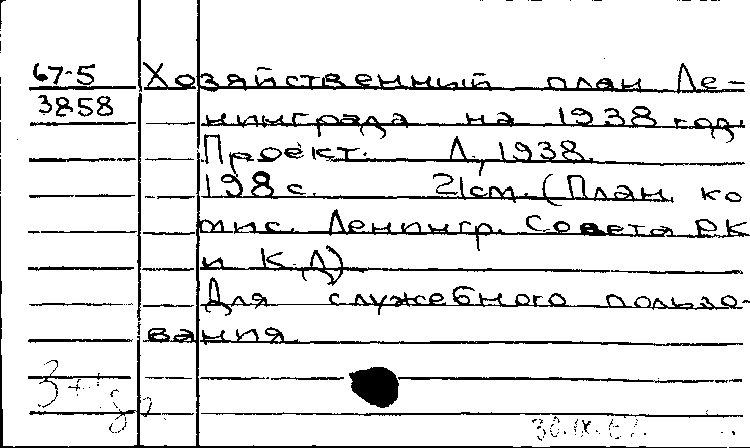 67-5 Хозяйственный план Ле-
3858 нинграда на 1938 год.
Проект. Л., 1938.
198 с. 21 см. (План. ко
мис. Ленингр. Совета РК
и К.Д)
Для служебного пользо-
вания.
30.IX.67.